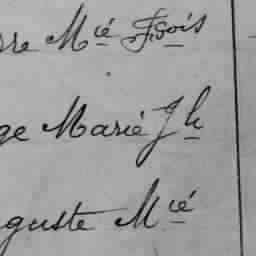 rre Mié Fçois
ge Marie Jh
guste Mié